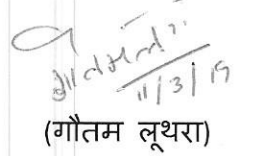 11/3/19
(गौतम लूथरा)